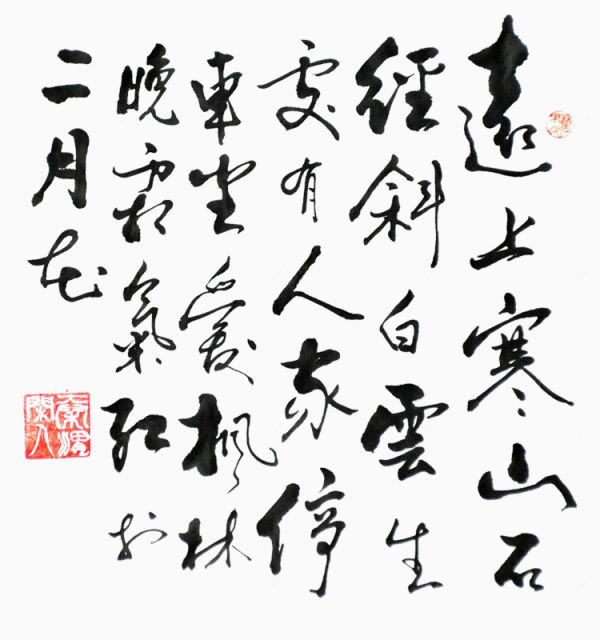 遠上寒山石
經斜白雲生
處有人家停
車坐愛楓林
晚霜氣紅於
二月花